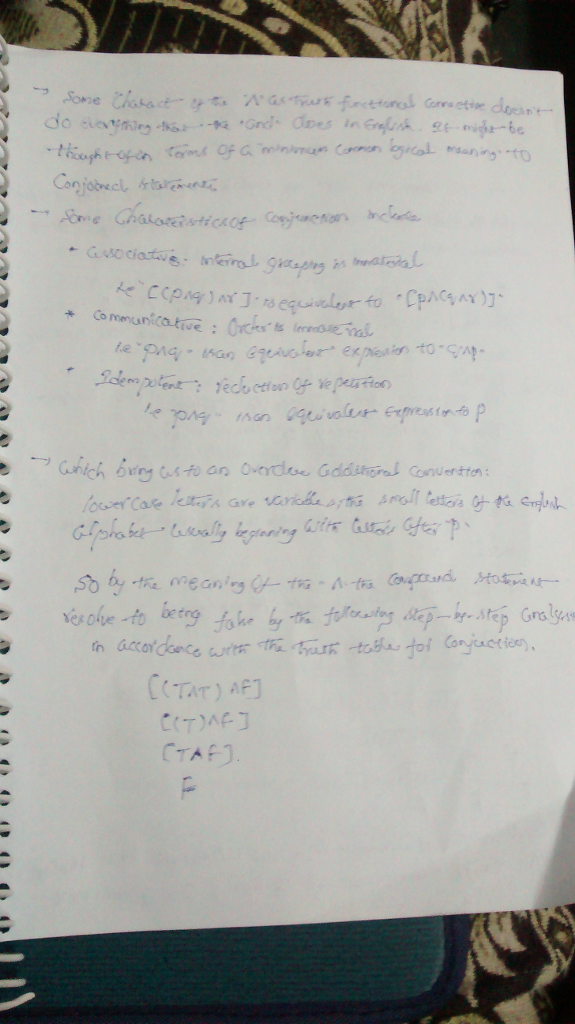 → Some Charact of the "Λ" as Truth functional connective doesn't
do everything that the "and" does in English. It might be
thought of in terms of a minimum common logical meaning to
Conjoined statements
→ Some Characteristics of conjunction include
* associative: internal grouping is immaterial
i.e "[(pΛq)Λr]" is equivalent to "[pΛ(qΛr)]"
* Communicative: Order is immaterial
i.e "pΛq" is an equivalent expression to "qΛp"
* Idempotent: reduction of repetition
i.e "pΛq" is an equivalent expression to p
→ Which bring us to an overdue additional convention:
lower case letters are variables, the small letters of the English
alphabet usually beginning with letters after p.
So by the meaning of the "Λ" the compound statement
resolve to being false by the following step-by-step analysis
in accordance with the truth table for conjuction.
[(TΛT)ΛF]
[(T)ΛF]
[TΛF].
F